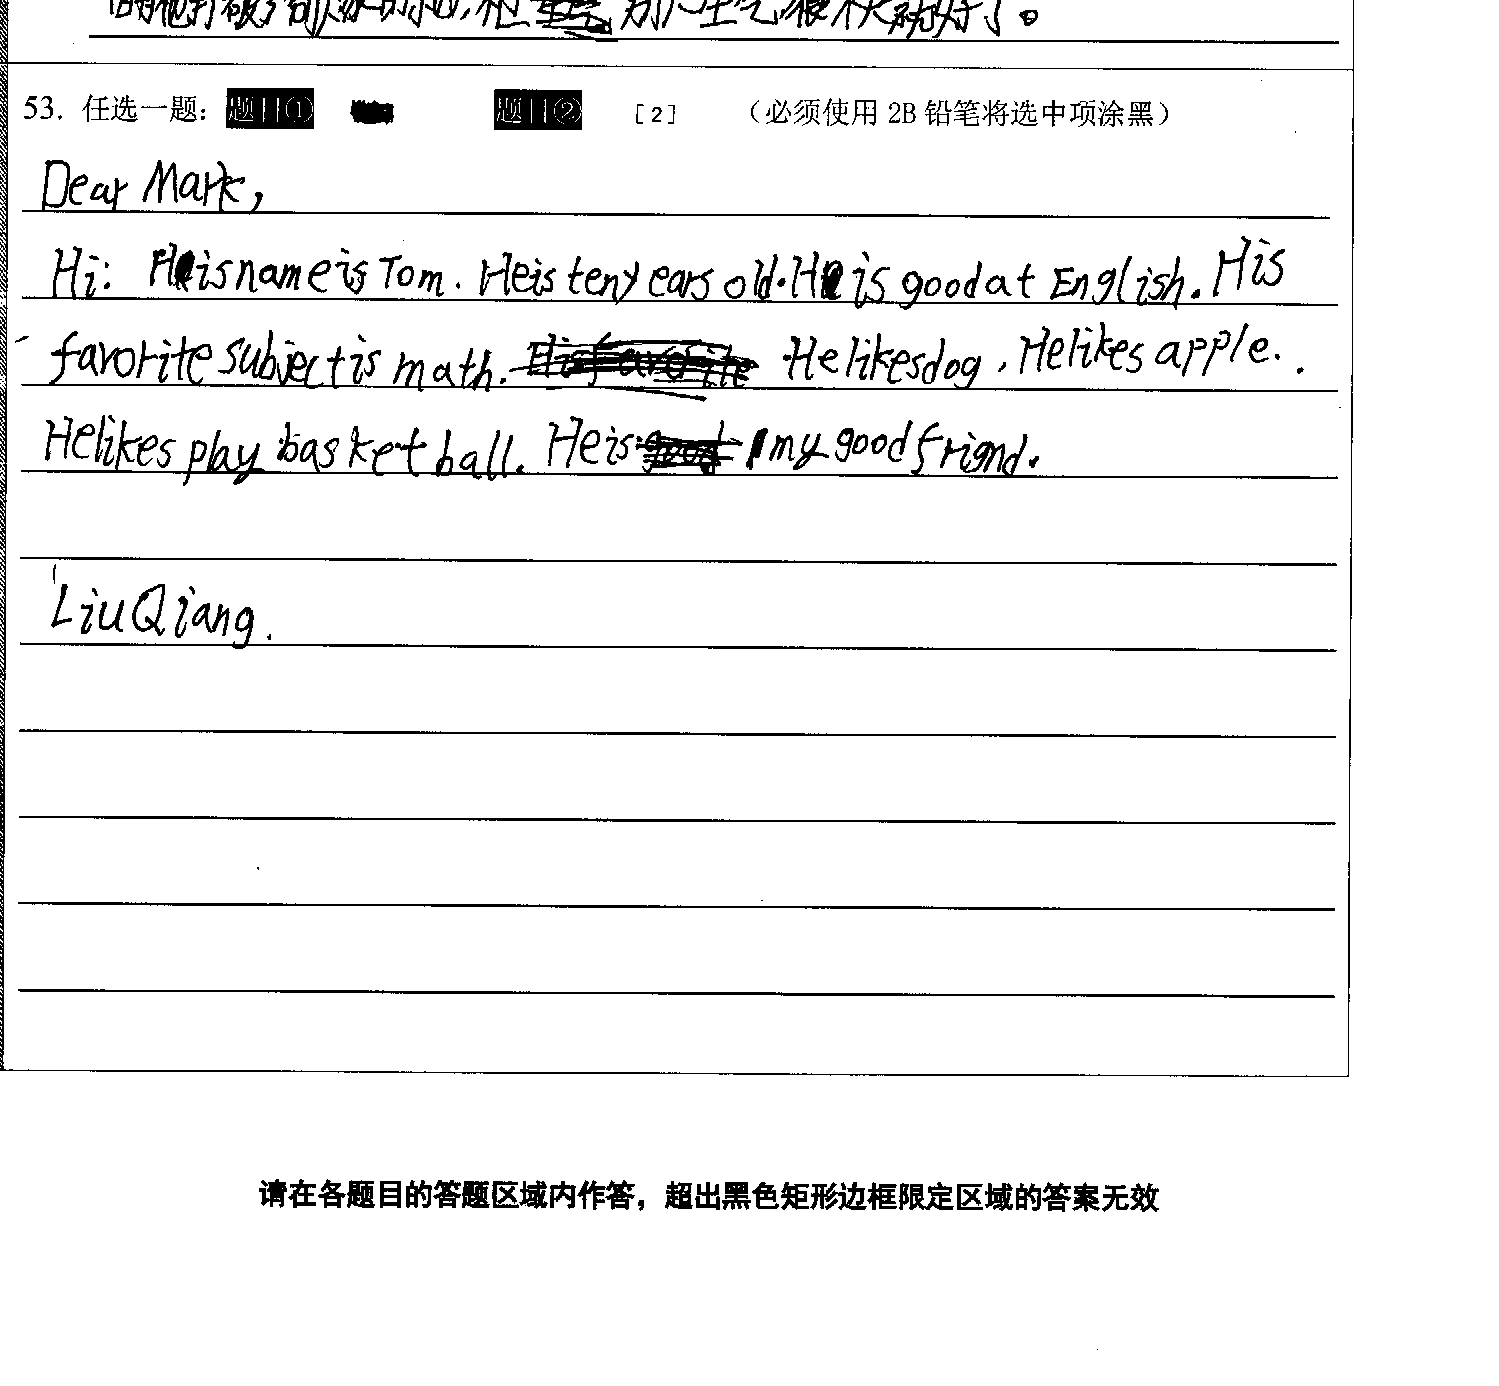 53. 任选一题： 题目① 题目② [2] （必须使用 2B 铅笔将选中项涂黑）
Dear Mark,
Hi: His name is Tom. He is ten years old. He is good at English. His
favorite subject is math. He likes dog, He likes apple.
He likes play basket ball. He is my good friend.
Liu Qiang.
请在各题目的答题区域内作答，超出黑色矩形边框限定区域的答案无效